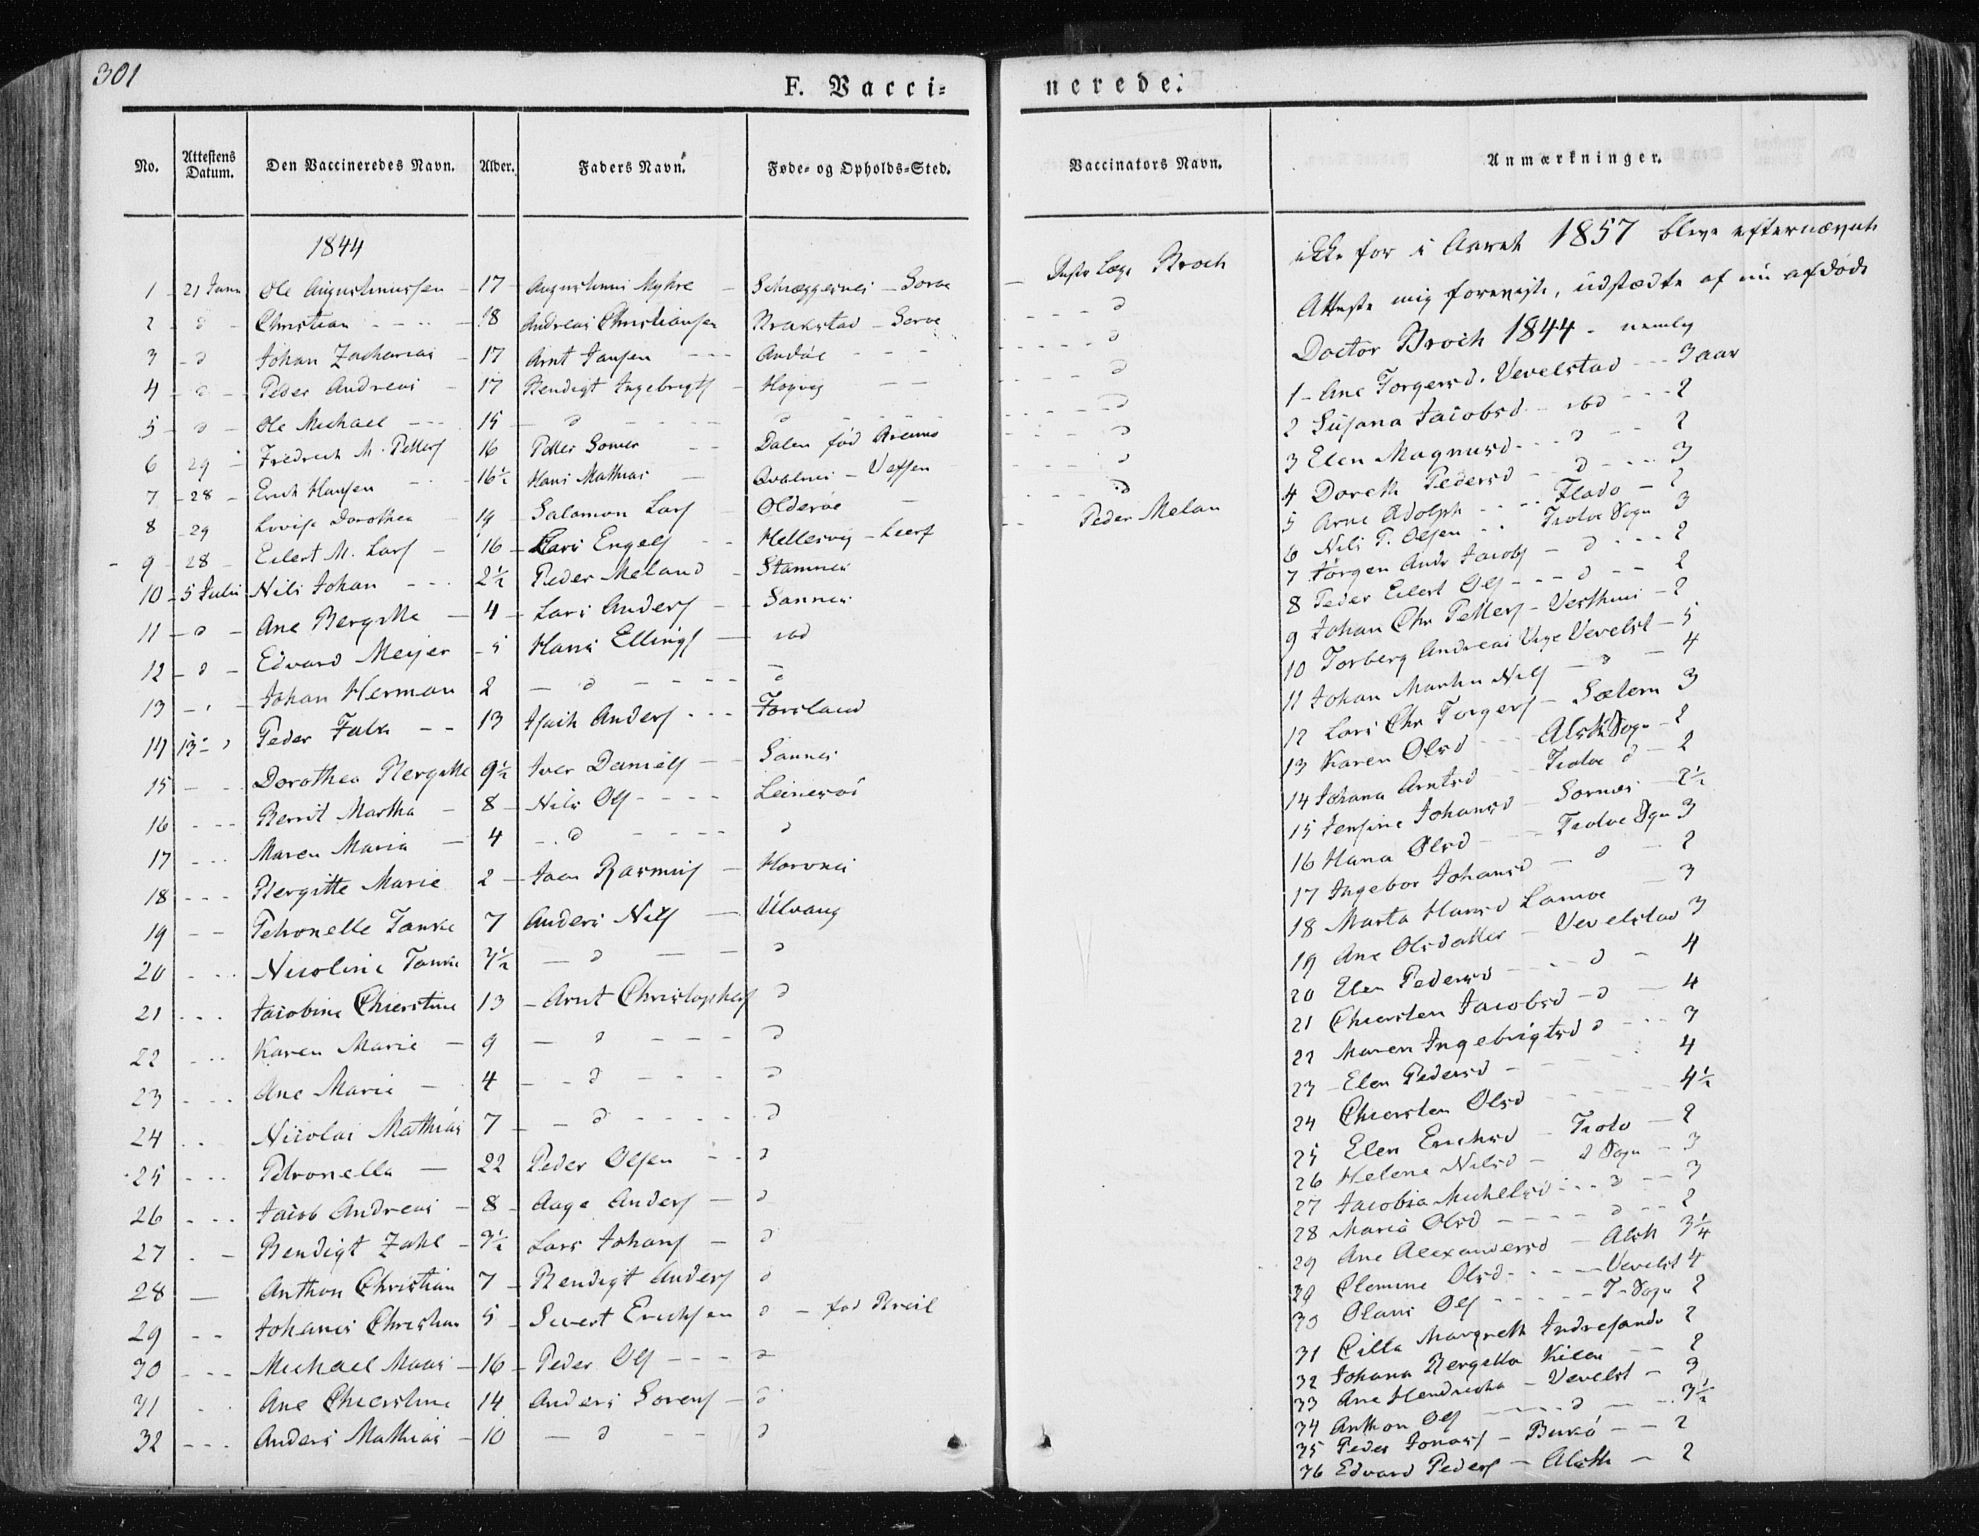 301
F. Vacci=
nerede.
No.
Attestens Datum.
Den Vaccineredes Navn.
Alder.
Faders Navn.
Føde= og Opholds=Sted.
Vaccinators Navn.
Anmærkninger.
1844
1 - 21 Juni Ole Augustinussen - 17 - Augustinus Myhre -
2 - d - Christian - - - 18 Andreas Christiansen
3 - d Johan Zacharias - 17 Arnt Jansen - - -
4 - d - Peder Andreas - 17 Bendigt Ingebrigts -
5 - d - Ole Michael - - - 15 - d - - - d
6 29 - Fredrich M. Petters 16 Petter - - Dalen fød
7 - 28 - Erich Hansen - 16½ Hans Mathias - - Vefsen
8 - 29 Dorothea - 19 - Salomon Lars - Olderøe
9 - 28 - Eilert M. Lars - 16 - Lars Engels - -
10 - 5 Juli Nils Johan - - - 2½ Peder Meland - Stamnes Peder Melan
11 - d - Ane Bergitte - 4 - Lars Anders - Sannes
12 - d - Edvard Meyer - 5 Hans Ellings - ibd
13 - - Johan Herman 2 - d - - - - d
14 13 - d Peder Falch - - 13 Anders - - - Forsland
15 - - Dorothea Bergitte 9½ Iver Daniels - - Sannes
16 - - - Berrit Martha - 8 - Nils Ols - - - -
17 - - - Maren Maria - 4 - d - - - - d
18 - - - Bergitte Marie 2 - Rasmus -
19 - - Petronelle 7 Anders Nils - Ulvang
20 - - - Nicoline 3½ - d - - d
21 - - - Jacobine Chierstine 13 - Arnt Christophers d
22 - - - Karen Marie - 9 - d - - - d
23 - - - Ane Marie - 4 - - d - - - d
24 - - Nicolai Mathias 7 - d - - - - d
25 - - - Petronella - 22 Peder Olsen - - d
26 - - - Jacob Andreas - 8 - Aage Anders - d
27 - - Bendigt Zahl - 3½ Lars Johans - d
28 - Anthon Christian 7 - Bendigt Anders d
29 - - Johanes Christian 5 - Sivert Erichsen d - fød
30 - - - Michael Maas - 16 - Peder Ols - - - d
31 - - Ane Chierstine 14 Anders Sorens - d
32 - - - Anders Mathias - 10 - d - - d
Broch
ikke før i Aaret 1857 bleve efternævnte
Atteste mig foreviste, udstædte af nu afdøde
Doctor Broch 1844 - nemlig
1 - Ane Torgersd. Vevelstad - - 3 aar
2 Susana Jacobsd - ibd - - - 2
3 Elen Magnusd - - - d - - 2
4 Doreth Pedersd - - d - - - 3
5 Arne Adolph - - - - - 2
6 Nils P. Olsen - - Sogn 3
7 Jørgen Andr Jacobs - d - - - 2
8 Peder Eilert Ols - - - d - - 2
9 Johan Chr Petters - - 2
10 Torberg Andreas Vevelst - 5
11 Johan Martin Nils - d - 4
12 Lars Chr Torgers - 3
13 Karen Olsd - - - Sogn - 2
14 Johana Arntsd - - d - 2
15 Jensine Johansd - - 2½
16 Hana Olsd - - Sogn 3
17 Ingebor Johansd - d - 2
18 Marta Hansd - 3
19 Ane Olsdatter - Vevelstad 3
20 Elen Pedersd - - - d - 4
21 Chiersten Jacobsd - d - 4
22 Maren Ingebrigtsd d - - - 3
23 - Elen Pedersd - - - 4
24 Chiersten Olsd - - - - - 4½
25 Elen Erichsd - - 2
26 Helene Nilsd - d Sogn - 3
27 Jacobia Michelsd - - - d - - 3
28 Maria Olsd - - - - d - - 2
29 Ane Alexandersd - 3¼
30 Olsd - - - - Vevelst 4
30 Olaus Ols - - - - - Sogn 2
31 Cilla Margreth 2
32 Johana Bergitta - - 2
33 Ane Hendricha - Vevelst - 3
34 Anthon Ols - - - - - d - - 3½
35 Peder Jonas - - - 2
36 Edvard Peders - - 2